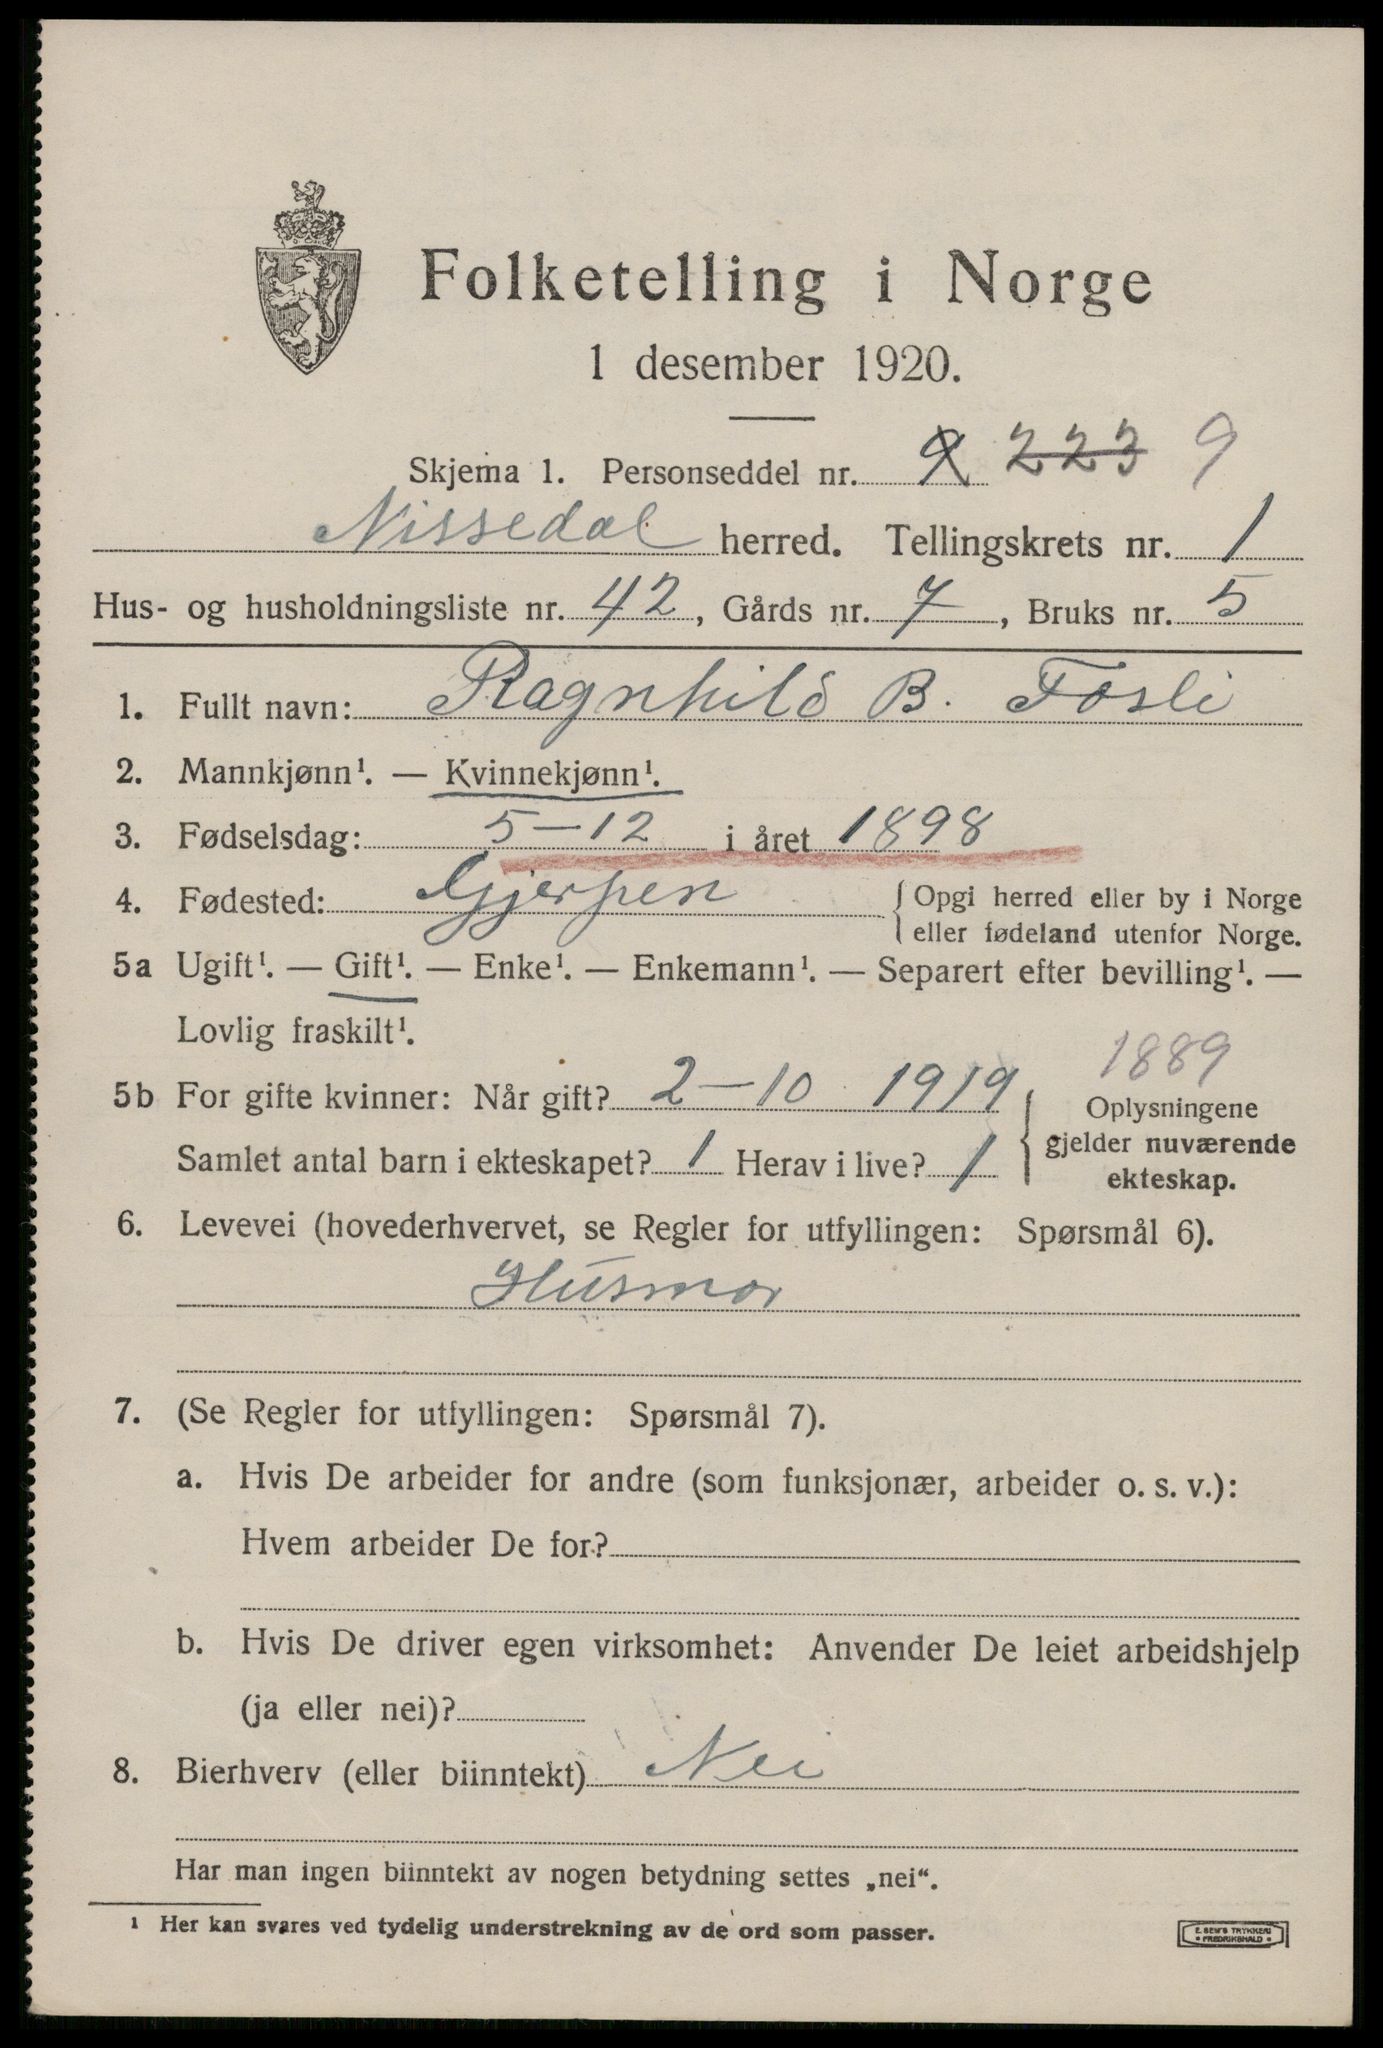 Folketelling i Norge
1 desember 1920.
Skjema 1. Personseddel nr. 9 223 9
Nissedal herred. Tellingskrets nr. 1
Hus- og husholdningsliste nr. 42, Gårds nr. 7, Bruks nr. 5
1. Fullt navn: Ragnhild B. Fosli
2. Mannkjønn¹. — Kvinnekjønn¹.
3. Fødselsdag: 5-12 i året 1898
4. Fødested: Gjerpen { Opgi herred eller by i Norge
eller fødeland utenfor Norge.
5a Ugift¹. — Gift¹. — Enke¹. — Enkemann¹. — Separert efter bevilling¹. —
Lovlig fraskilt¹.
1889
5b For gifte kvinner: Når gift? 2-10 1919
Samlet antal barn i ekteskapet? 1 Herav i live? 1
Oplysningene
gjelder nuværende
ekteskap.
6. Levevei (hovederhvervet, se Regler for utfyllingen: Spørsmål 6).
Husmor
7. (Se Regler for utfyllingen: Spørsmål 7).
a. Hvis De arbeider for andre (som funksjonær, arbeider o. s. v.):
Hvem arbeider De for?
b. Hvis De driver egen virksomhet: Anvender De leiet arbeidshjelp
(ja eller nei)?
8. Bierhverv (eller biinntekt) Nei
Har man ingen biinntekt av nogen betydning settes „nei“.
¹ Her kan svares ved tydelig understrekning av de ord som passer.
E. SEM'S TRYKKERI
FREDRIKSHALD